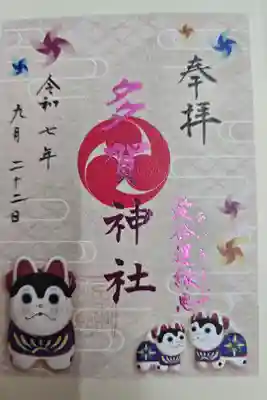 奉拝
多賀神社
令和七年
九月二十二日